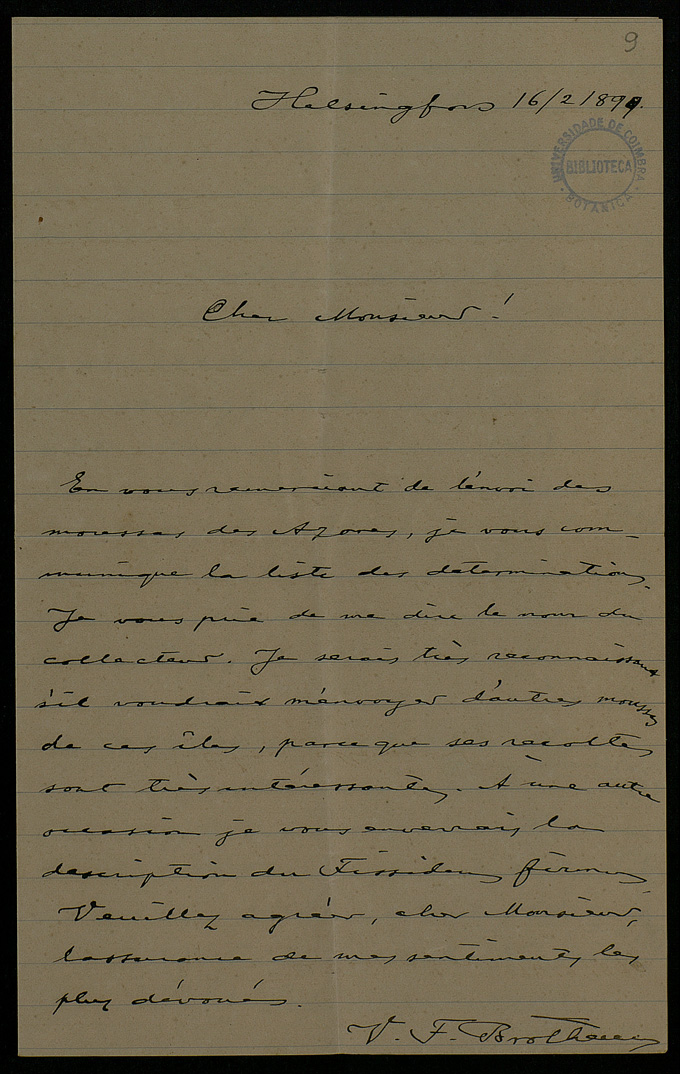 9
Helsingfors 16/2 1899.
UNIVERSIDADE DE COIMBRA
BIBLIOTECA
BOTANICA
Cher Monsieur!
En vous remerciant de l'envoi des
mousses des Azores, je vous com-
munique la liste des determinations.
Je vous prie de me dire le nom du
collecteur. Je serais très reconnaissant
s'il voudrait m'envoyer d'autres mousses
de ces îles, parce que ses recoltes
sont très intéressantes. A une autre
occasion je vous enverrais la
description du Fissidens
Veuillez agréer, cher Monsieur,
l'assurance de mes sentiments les
plus dévoués.
V. F. Brotherus